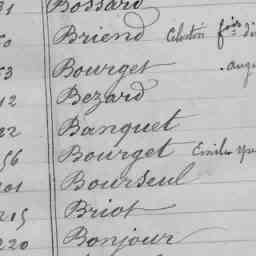 31 Bossard
50 Briend Célestin fois d
53 Bourget aug
12 Bezard
22 Banquet
56 Bourget Emile
201 Bourseul
215 Briot
220 Bonjour